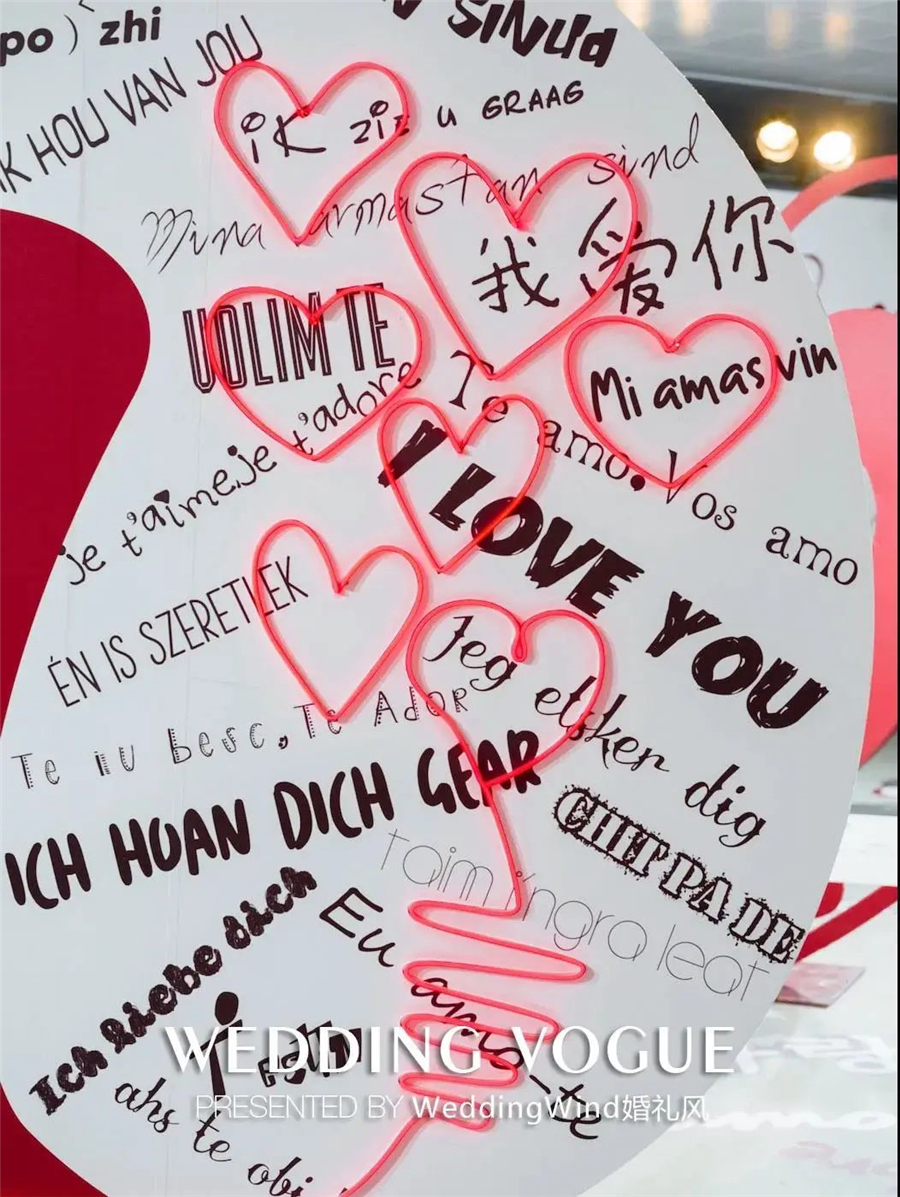 po) zhi
SINUA
IK HOU VAN JOU
ik zie u GRAAG
Mina armastan sind
我爱你
VOLIM TE
Mi amas vin
je t'aimeje t'adore
Te amo, Vos amo
I LOVE YOU
ÉN IS SZERETLEK
Jeg elsker dig
Te iu besc, Te Ador
ICH HUAN DICH GEAR
CHIT PA DE
taim i'ngra leat
Ich liebe dich
Eu amo-te
ahs te obi
WEDDING VOGUE
PRESENTED BY WeddingWind婚礼风